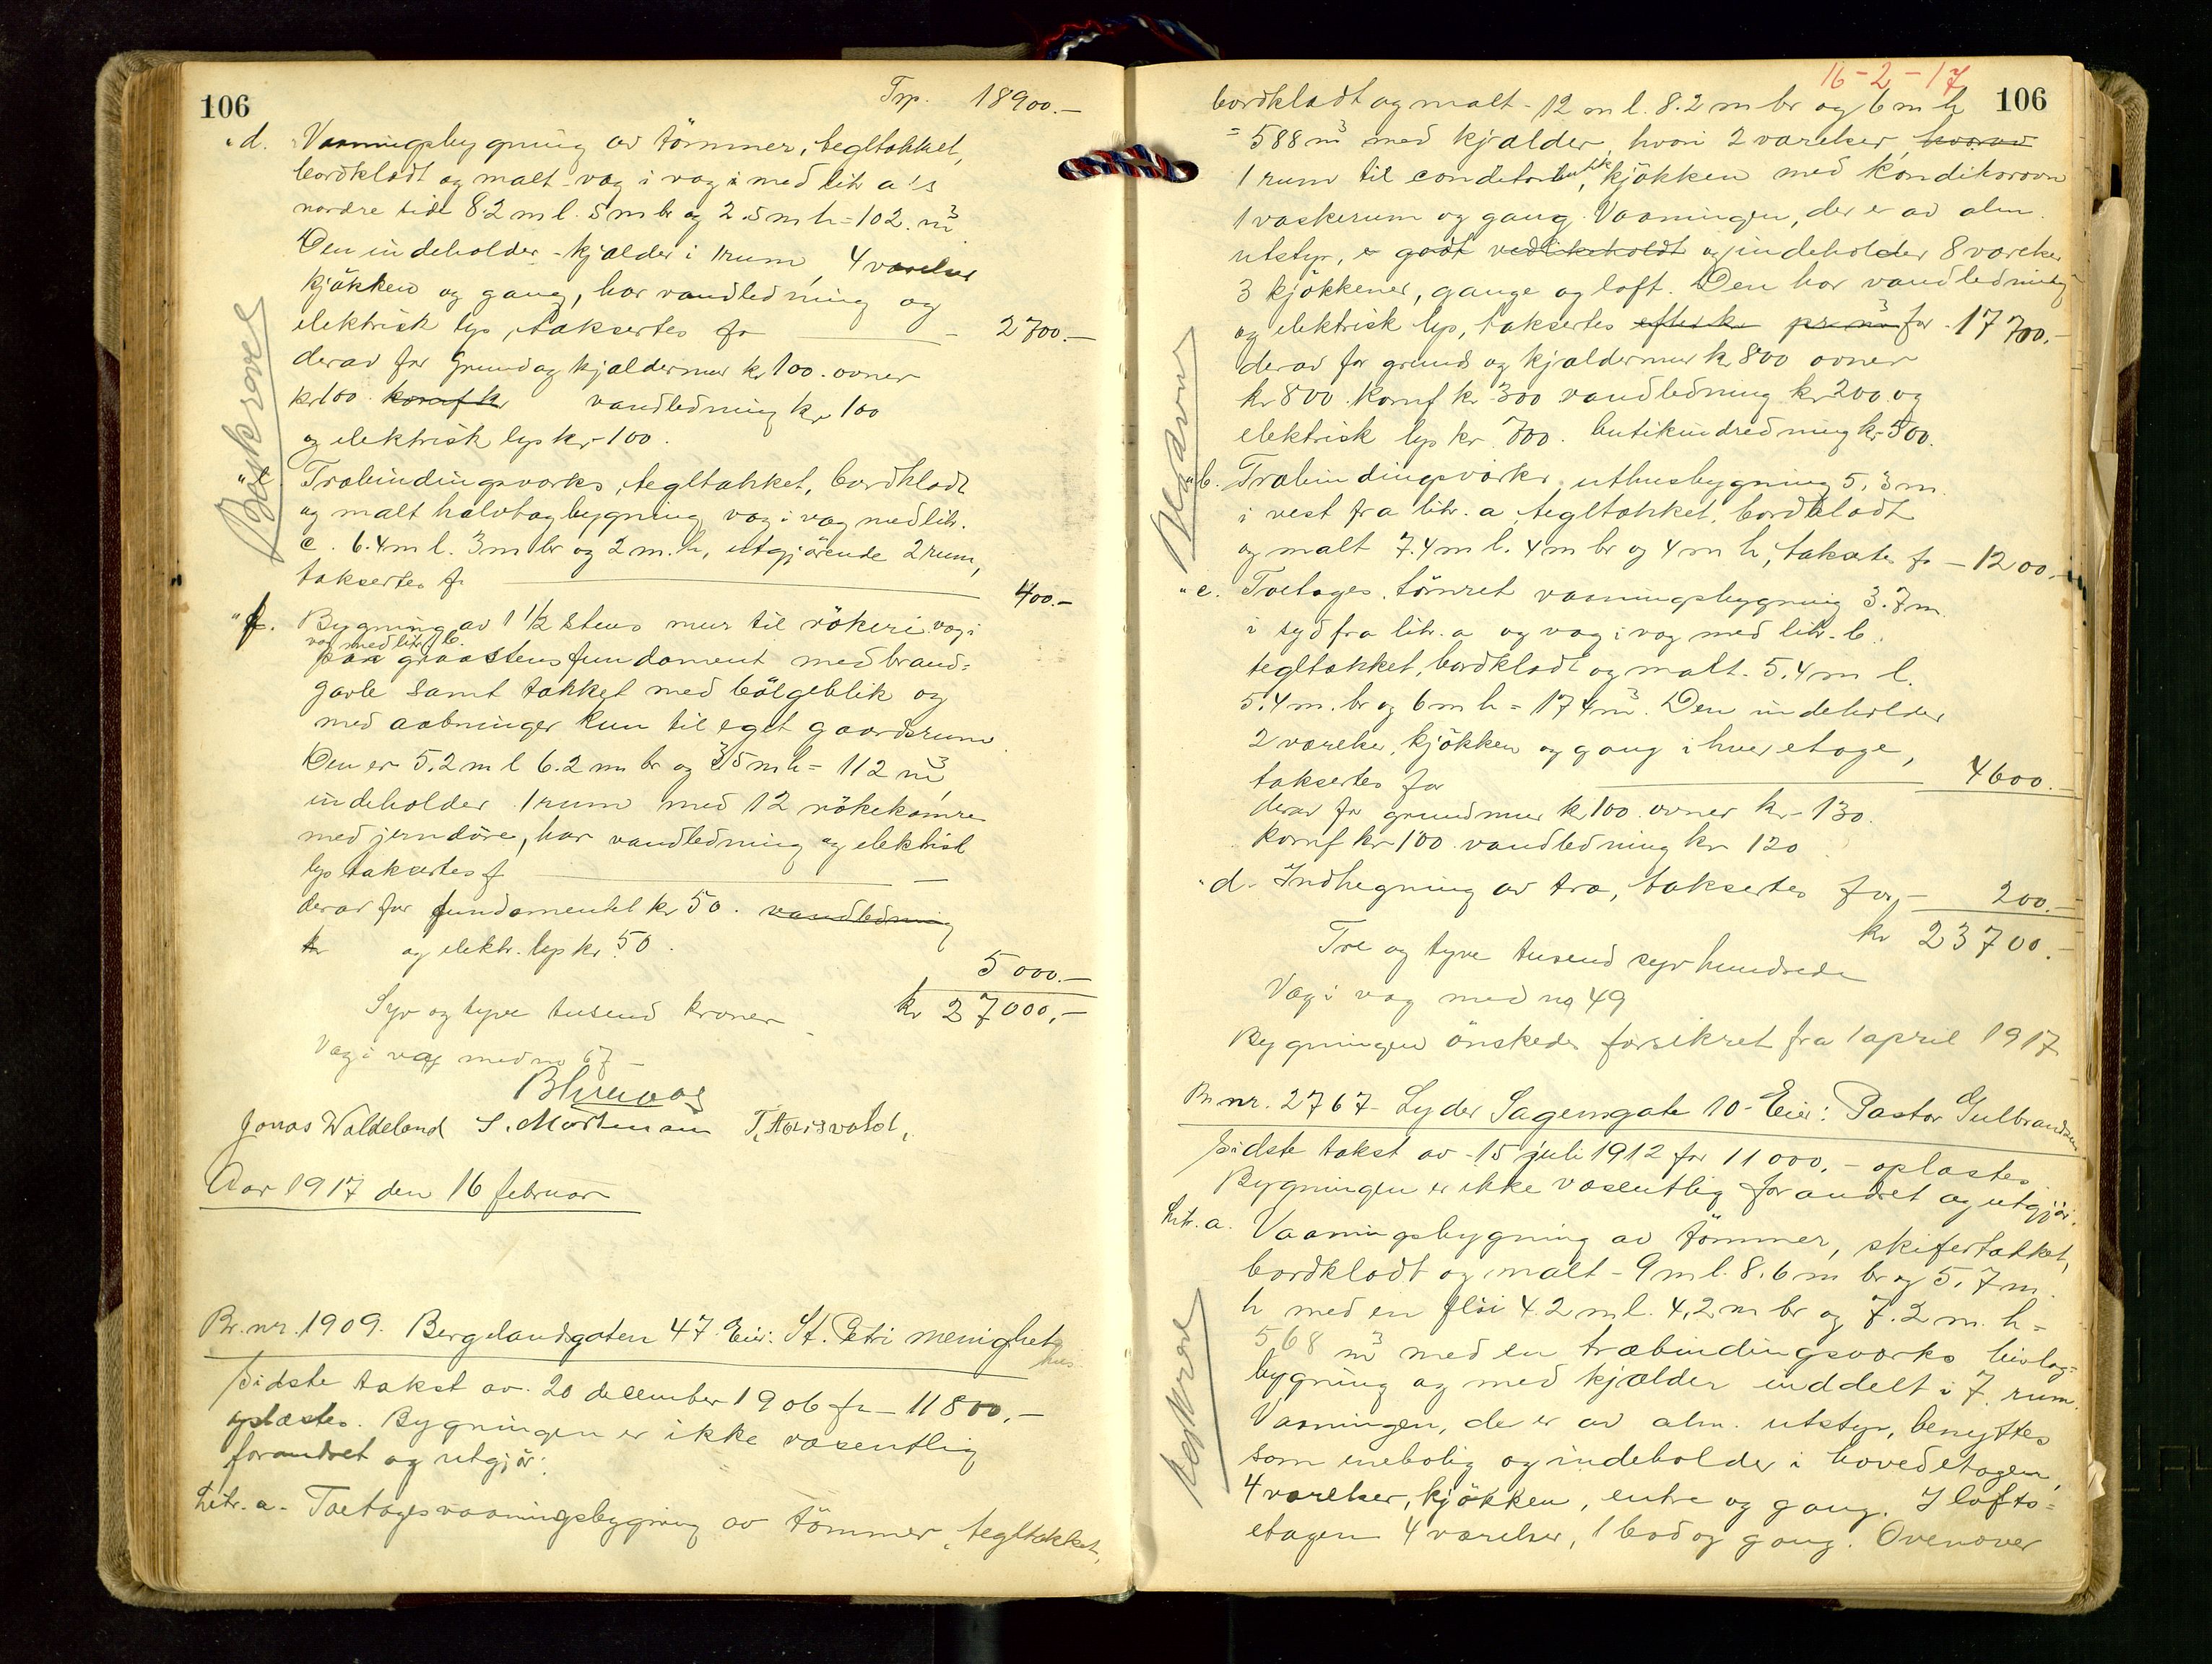 106
Trp. 18900.-
"d. Vaaningsbygning av tömmer, tegltækket,
bordklædt og malt - væg i væg i med litr a's
nordre side 8.2 m l. 5 m br og 2.5 m h = 102. m3
Den indeholder - kjælder i 1 rum, 4 værelser
kjökken og gang, har vandledning og
elektrisk lys, taksertes for - 2700.-
derav for Grund og kjældermur kr 100. ovner
kr 100. komf kr vandledning kr. 100
og elektrisk lys kr. 100.
"e. Træbindingsværks, tegltækket, bordklædt
og malt halvtagbygning væg i væg med litr.
c. 6.4 m l. 3 m br og 2 m. h, utgjörende 2 rum,
taksertes f 400.-
"f. Bygning av 1 1/2 stens mur til rökeri væg i
væg med litr. b.
paa graastensfundament med brand=
gavle samt tækket med bölgeblik og
med aabninger kun til eget gaardsrum.
Den er 5.2 m l 6.2 m br og 3,5 m h = 112 m3,
indeholder 1 rum med 12 rökekamre
med jerndöre, har vandledning og elektrisk
lys taksertes f -
derav for fundamentet kr 50. vandledning
kr og elektr. lys kr 50.
5000.-
Syv og tyve tusend kroner - kr 27000,-
Væg i væg med no 67 -
Jonas Waldeland S. Mortensen
Aar 1917 den 16 februar
Br. nr. 1909. Bergelandsgaten 47. Eier: St. Petri menighets
hus
Sidste takst av. 20 december 1906 for - 11800,-
oplæstes. Bygningen er ikke væsentlig
forandret og utgjör:
Litr. a. Toetages vaaningsbygning av tömmer, tegltækket,
16-2-17
106
bordklædt og malt - 12 m l. 8.2 m br og 6 m h
= 588 m3 med kjælder, hvori 2 værelser, hvorav
1 rum til conditoributik, kjökken med konditorovn
1 vaskerum og gang. Vaaningen, der er av alm.
utstyr, er godt vedlikeholdt og indeholder 8 værelser
3 kjökkener, gange og loft. Den har vandledning
og elektrisk lys, taksertes efter kr pr m3 for - 17700,-
derav for grund og kjældermur kr 800 ovner
kr 800. komf kr 300 vandledning kr 200 og
elektrisk lys kr 700. butikindredning kr 500.
"b. Træbindingsværks, uthusbygning 5,3 m.
i vest fra litr. a, tegltækket, bordklædt
og malt 7.4 m l. 4 m br og 4 m h, taksertes for - 1200.-
"c. Toetages, tömret vaaningsbygning 3.7 m.
i syd fra litr. a og væg i væg med litr. b.
tegltækket, bordklædt og malt. 5,4 m l.
5,4 m. br og 6 m h = 174 m3. Den indeholder
2 værelser, kjökken og gang i hver etage,
taksertes for 4600.-
derav for grundmur kr 100. ovner kr - 130.
komf kr 100 vandledning kr 120
"d. Indhegning av træ, taksertes for, - 200.-
kr 23700.-
Tre og tyve tusend syv hundrede
Væg i væg med no 49
Bygningen önskedes forsikret fra 1 april 1917
Br. nr. 2767 - Lyder Sagensgate 10 - Eier: Pastor Gulbrandsen
Sidste takst av - 15 juli 1912 for 11000.- oplæstes.
Bygningen er ikke væsentlig forandret og utgjör.
Litr. a. Vaaningsbygning av tömmer, skifertækket,
bordklædt og malt - 9 m l. 8.6 m br og 5,7 m.
h med en flöi 4.2 m l. 4,2 m br og 7.2 m. h =
568 m3 med en træbindingsværks bislag=
bygning og med kjælder inddelt i 7 rum.
Vaaningen, der er av alm. utstyr, benyttes
som enebolig og indeholder i hovedetagen,
4 værelser, kjökken, entre og gang. I lofts=
etagen 4 værelser, 1 bod og gang. Ovenover